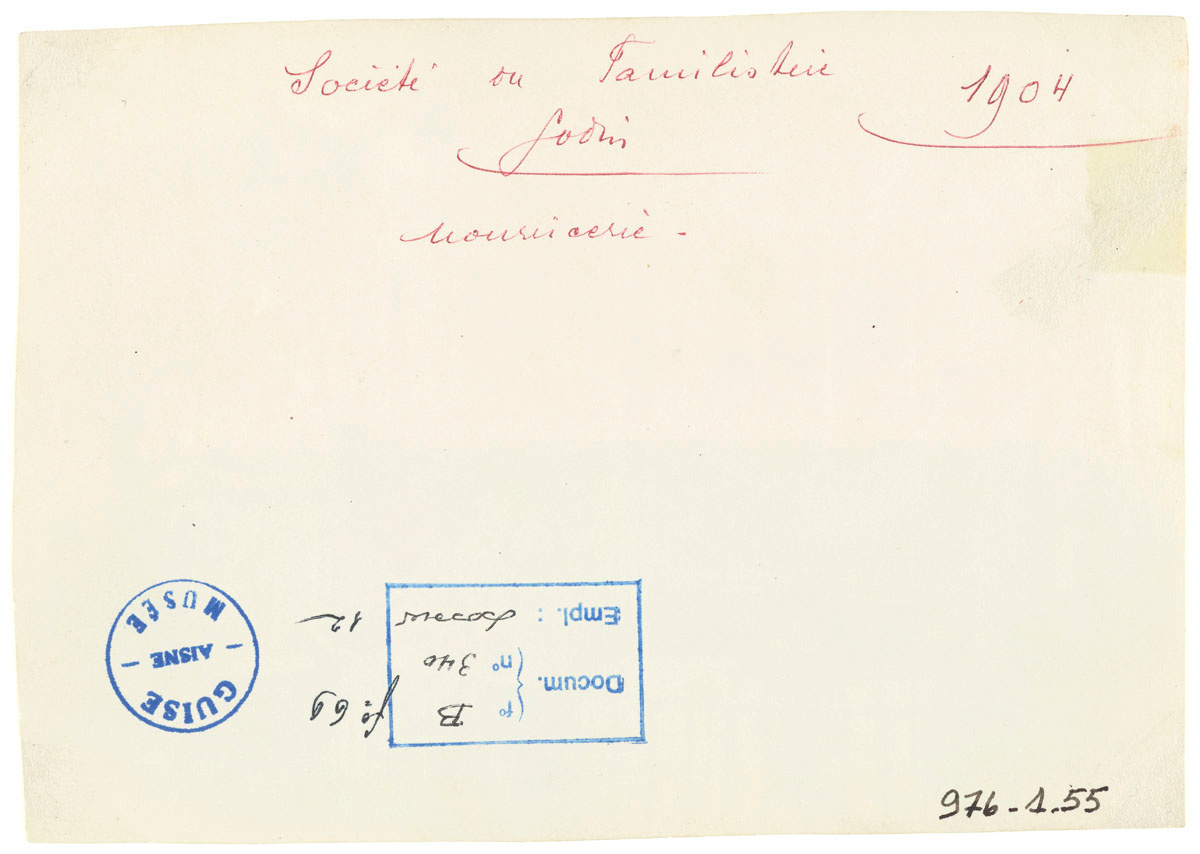 Société du Familistère 1904
Godin
Nourricerie -
GUISE
- AISNE -
MUSÉE
Docum. ( fo B fo: 69
( no 340
Empl. : 12
976-1.55